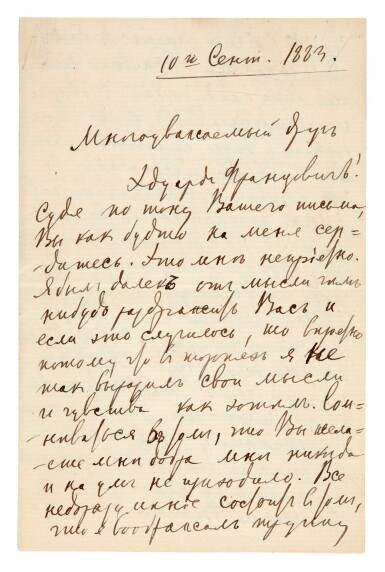 10го Сент. 1883.
Многоуважаемый другъ
Эдуардъ Францовичъ!
Судя по тону Вашего письма,
Вы какъ будто на меня сер-
-дитесь. Это мнѣ непріятно.
Я былъ далекъ отъ мысли чѣмъ
нибудь раздражить Васъ и
если это случилось, то
потому что въ я не
такъ выразилъ свои мысли
и чувства какъ хотѣлъ. Сом-
-нѣваться въ томъ, что Вы жела-
-ете мнѣ добра мнѣ никогда
и на умъ не приходило. Все
недоразумѣніе состоитъ въ томъ,
что я воображалъ